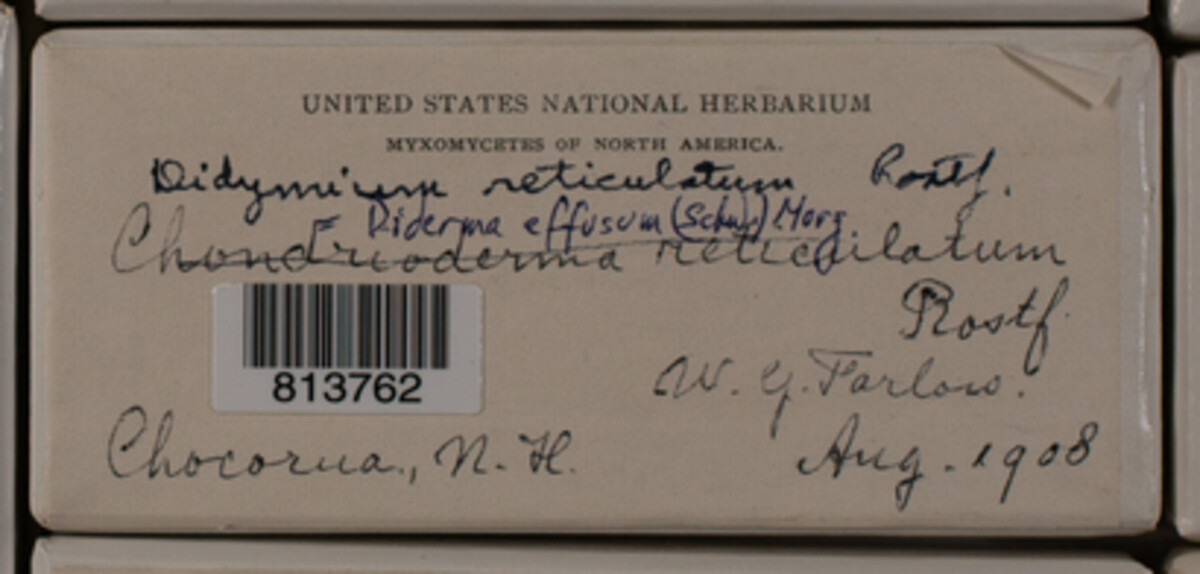 UNITED STATES NATIONAL HERBARIUM
MYXOMYCETES OF NORTH AMERICA.
Didymium reticulatum Rostf.
= Diderma effusum (Schw.) Morg.
Chondrioderma reticulatum
Rostf.
813762
W. G. Farlow.
Chocorua., N. H.
Aug. 1908